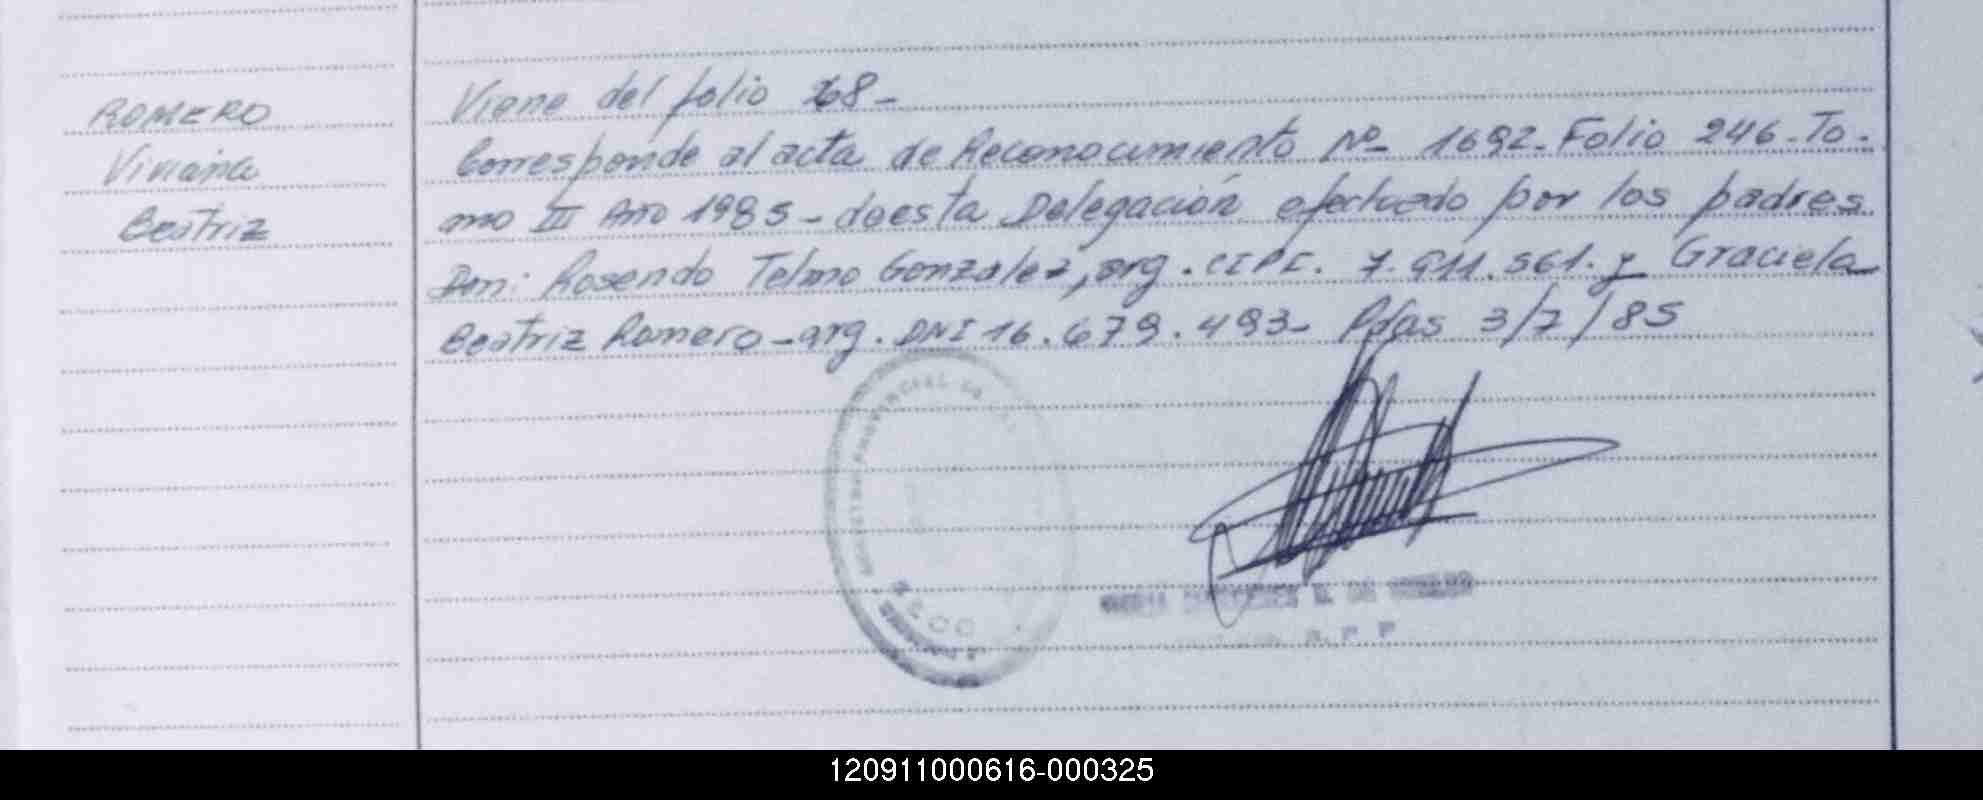 ROMERO
Viviana
Beatriz
Viene del folio 168-
Corresponde al acta de Reconocimiento Nº 1692-Folio 246-To-
mo III Año 1985-de esta Delegación efectuado por los padres
Don: Rosendo Telmo Gonzalez, arg. CIPF. 7.911.561. y Graciela
Beatriz Romero-arg. DNI 16.679.493- Pdas 3/7/85
REGISTRO PROVINCIAL DE LAS
POSADAS
120911000616-000325